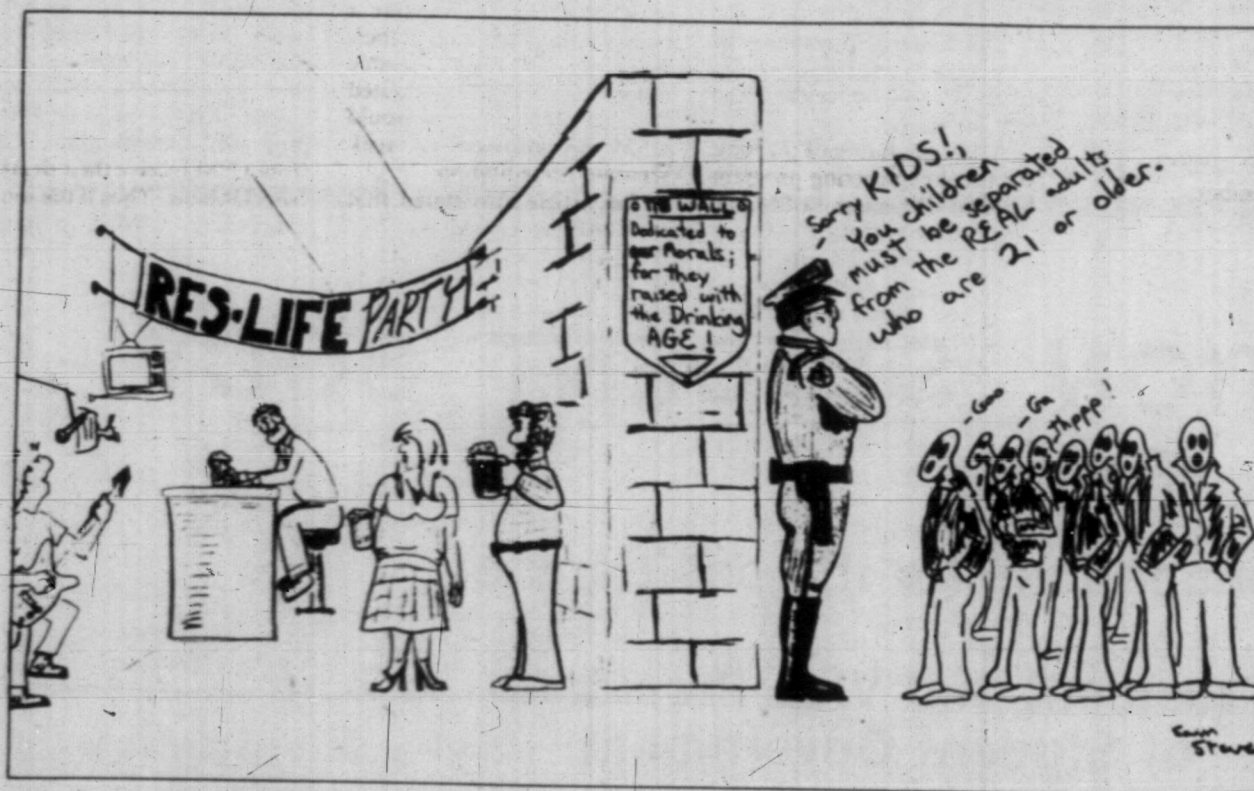 RES-LIFE PARTY
THE WALL
Dedicated to
our Morals;
for they
raised with
the Drinking
AGE!
- Sorry KIDS!,
You children
must be separated
from the REAL adults
who are 21 or older.
- Goo
- Ga
- Thppp!